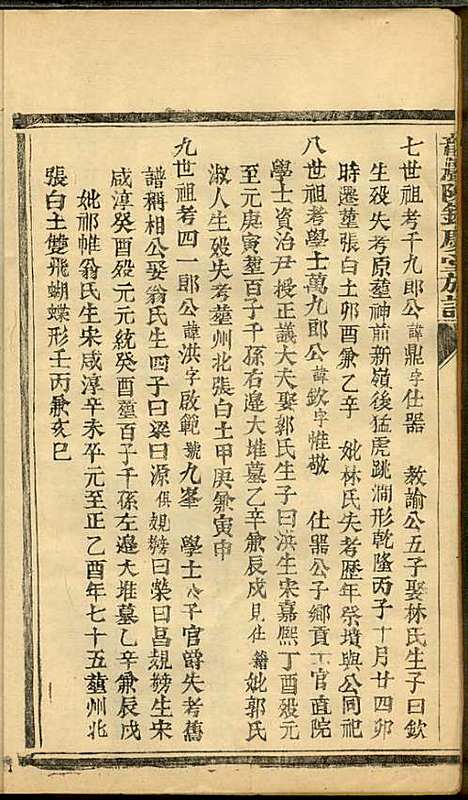 七世祖考千九郎公諱鼎字仕器 教諭公五子娶林氏生子曰欽
生殁失考原塟神前新嶺後猛虎跳澗形乾隆丙子十月廿四卯
時遷塟張白土卯酉兼乙辛 妣林氏失考歷年祭墳與公同祀
八世祖考學士萬九郎公諱欽字惟敬 仕器公子鄉貢官直院
學士資治尹授正議大夫娶郭氏生子曰洪生宋嘉熙丁酉殁元
至元庚寅塟百子千孫右邉大堆墓乙辛兼辰戍見仕籍妣郭氏
淑人生殁失考塟州北張白土甲庚兼寅申
九世祖考四一郎公諱洪字啟範號九峯 學士公子官爵失考舊
譜稱相公娶翁氏生四子曰梁曰源俱覡榜曰榮曰昌覡榜生宋
咸淳癸酉殁元元統癸酉塟百子千孫左邉大堆墓乙辛兼辰戍
妣祁帷翁氏生宋咸淳辛未卒元至正乙酉年七十五塟州北
張白土雙飛蝴蝶形壬丙兼亥巳